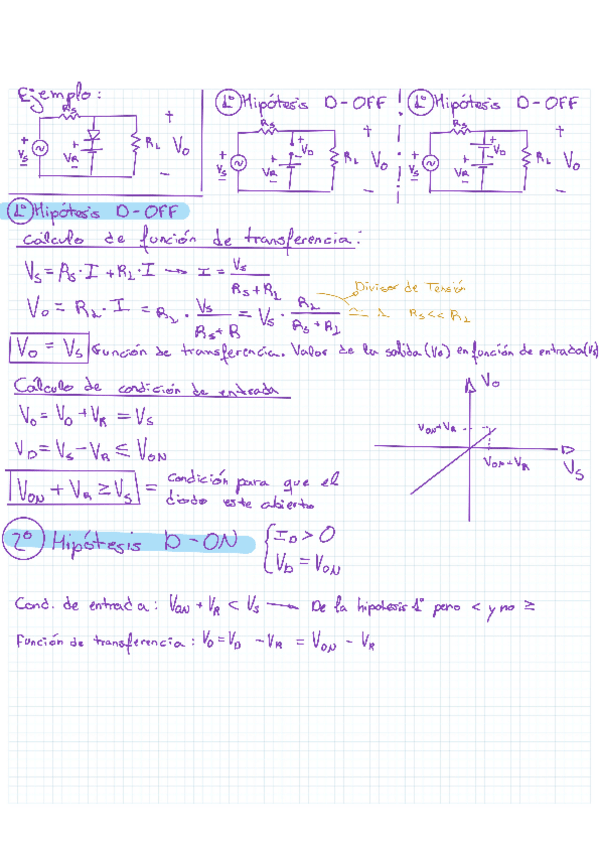 Ejemplo:
Rs
+
Vs
-
+
VR
-
RL
+
Vo
-
1º Hipótesis D-OFF
Rs
+
Vs
-
+
VD
-
+
VR
-
RL
+
Vo
-
1º Hipótesis D-OFF
Rs
+
Vs
-
+
VD
-
+
VR
-
RL
+
Vo
-
1º Hipótesis D-OFF
Cálculo de función de transferencia:
Vs = Rs · I + RL · I → I = Vs / Rs + RL
Divisor de Tensión
Vo = RL · I = RL · Vs / Rs + R = Vs · RL / Rs + RL ≃ 1 Rs << RL
Vo = Vs Función de transferencia. Valor de la salida (Vo) en función de entrada (Vs)
Cálculo de condición de entrada
Vo = VD + VR = Vs
VD = Vs - VR ≤ VON
VON + VR ≥ Vs = condición para que el
diodo este abierto
Vo
VON + VR
VON + VR
Vs
2º Hipótesis D-ON { ID > 0
VD = VON
Cond. de entrada: VON + VR < Vs → De la hipotesis 1º pero < y no ≥
Función de transferencia: Vo = VD - VR = VON - VR